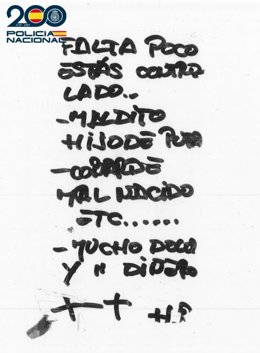 200
POLICIA
NACIONAL
FALTA POCO
ESTÁS CONTRO
LADO..
-MALDITO
HIJO DE PUTA
-COBARDE
MAL NACIDO
ETC......
-MUCHO DOLOR
Y DINERO
++ H.P